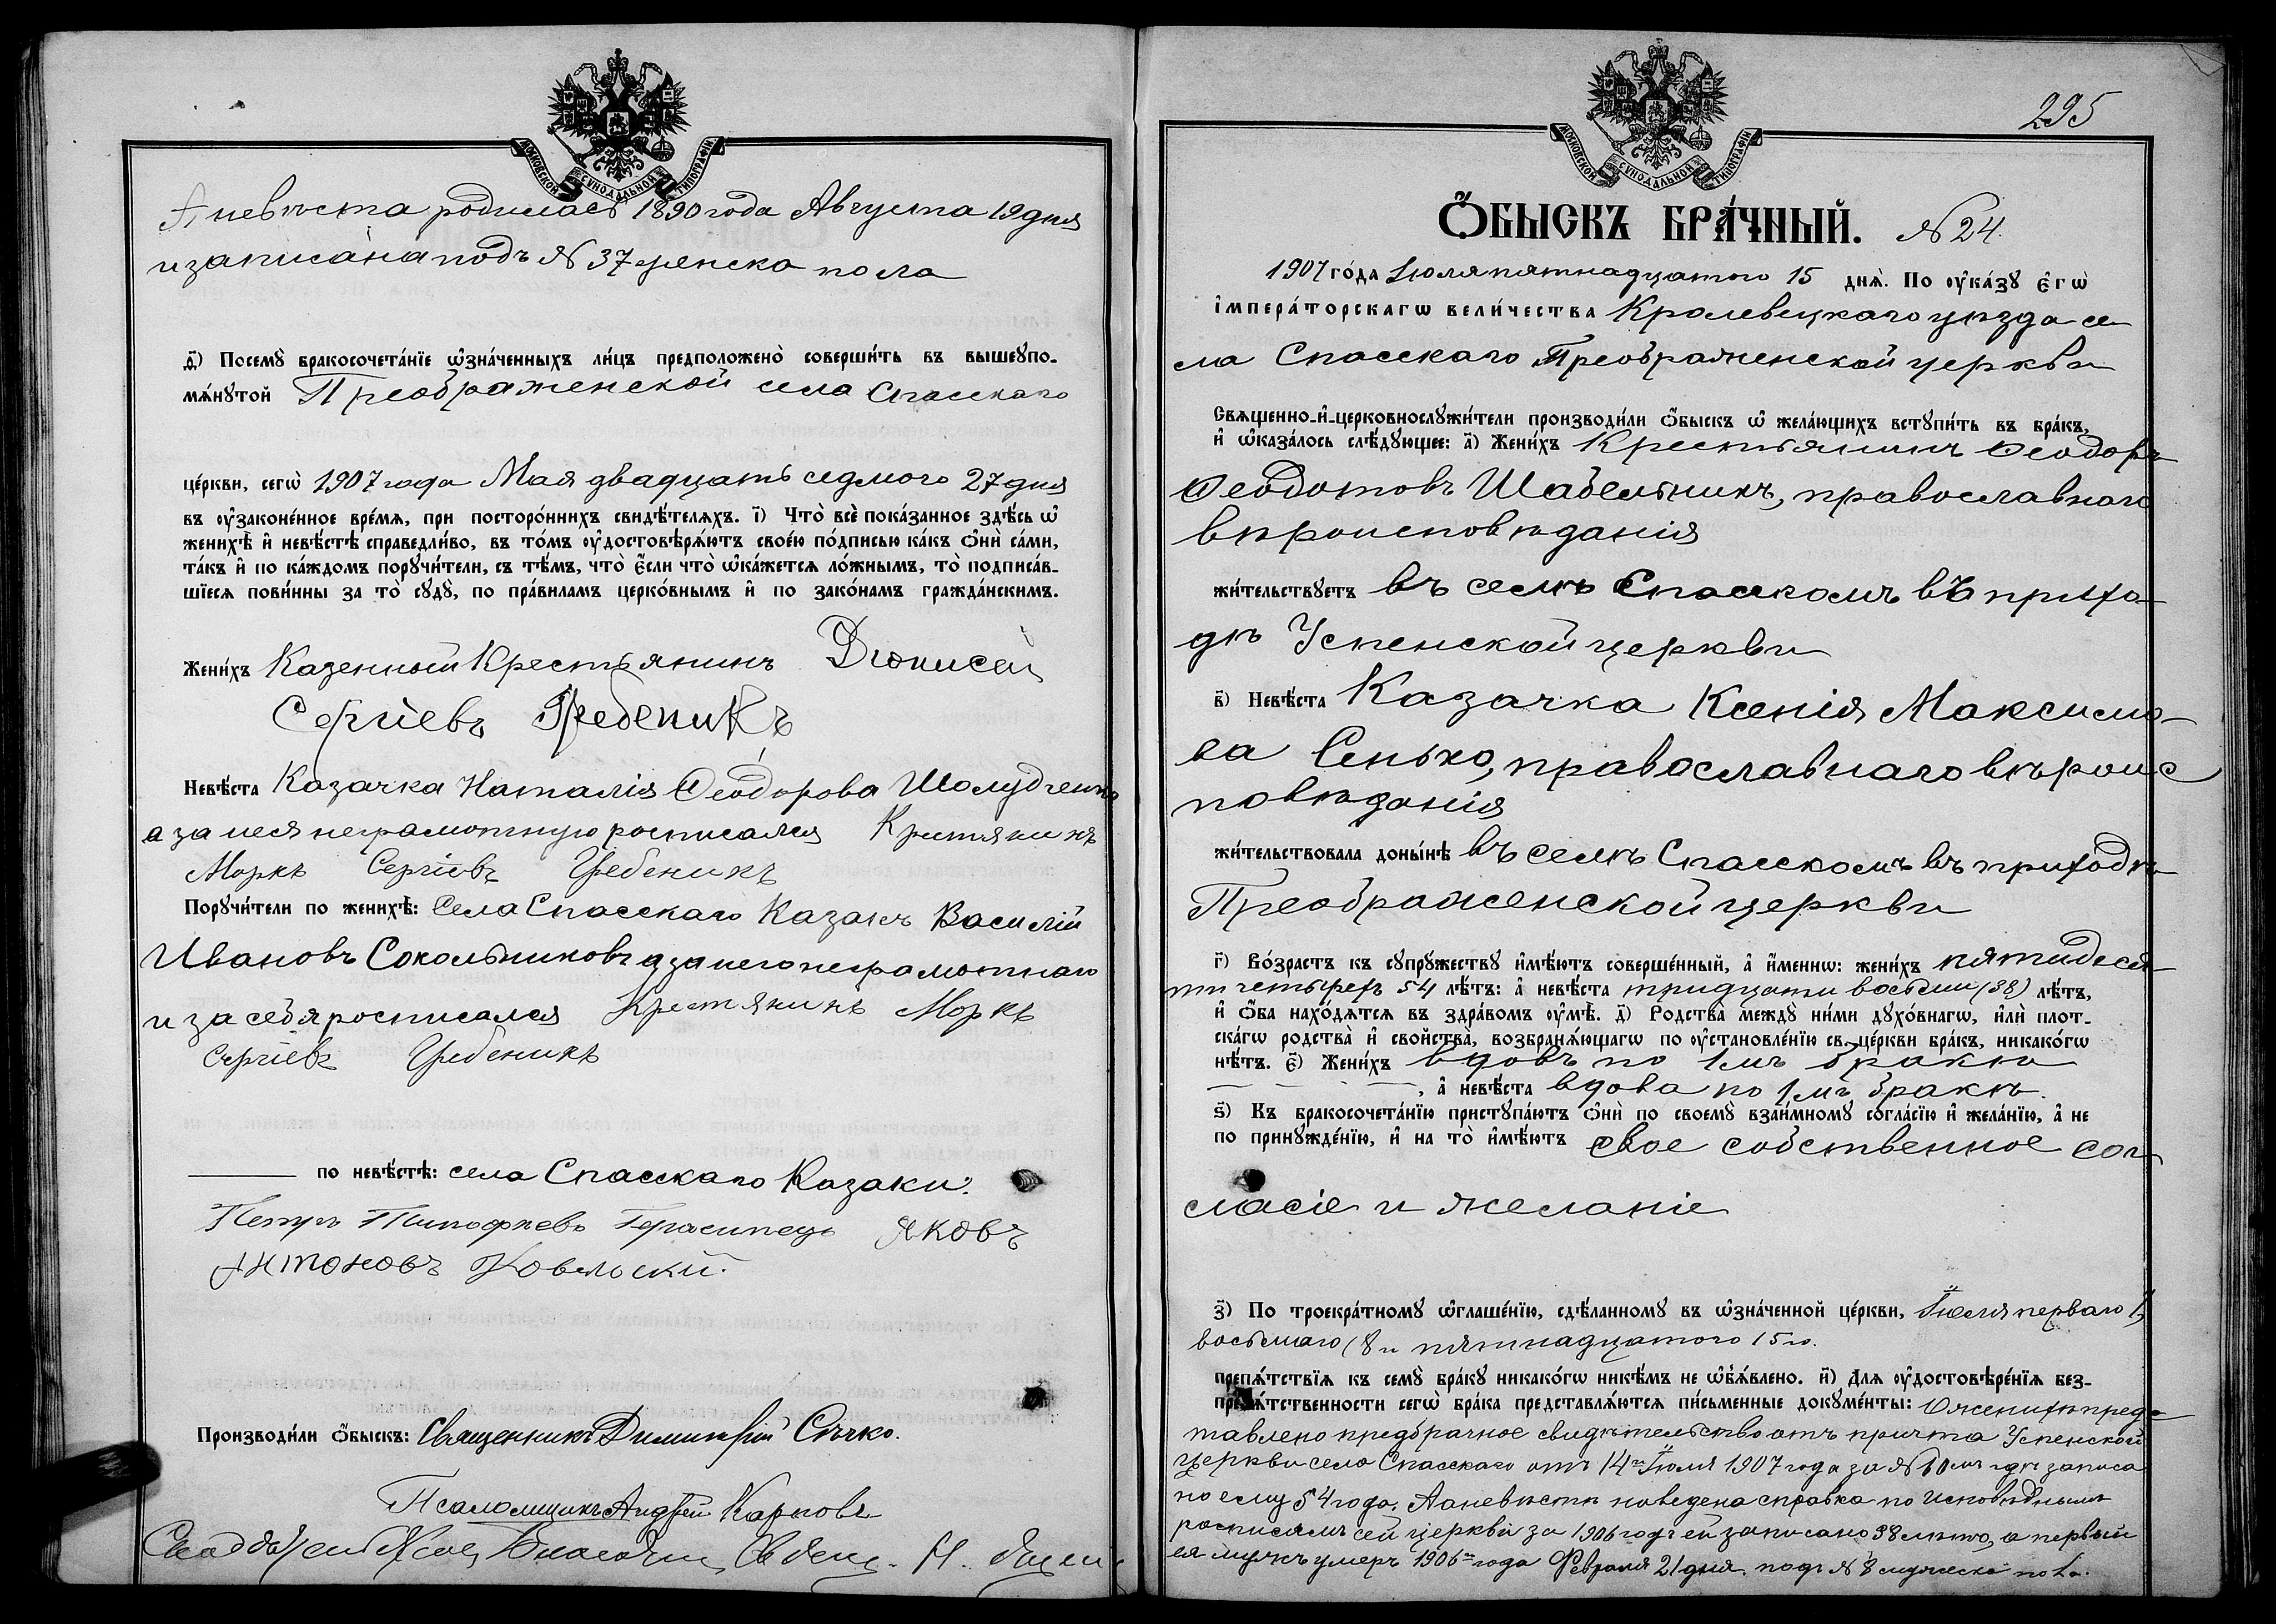 МОСКОВСКОЙ СѴНОДАЛЬНОЙ ТИПОГРАФІИ
А невѣста родилась 1890 года Августа 19 дня
и записана подъ № 37 женско пола
д҃і) Посемꙋ̀ бракосочета́нїе ѡ҆зна́ченныхъ ли́цъ предположено̀ соверши́ть въ вышеꙋпо-
мѧ́нꙋтой Преображенской села Спасскаго
це́ркви, сегѡ̀ 1907 года Мая двадцать седмого 27 дня
въ ᲂу҆зако́ненное вре́мѧ, при посторо́ннихъ свидѣ́телѧхъ. і҃) Что̀ всѐ пока́занное здѣ́сь ѡ҆
женихѣ̀ и҆ невѣ́стѣ справедли́во, въ то́мъ ᲂу҆достовѣрѧ́ютъ свое́ю по́дписью ка́къ ѻ҆нѝ са́ми,
та́къ и҆ по ка́ждомъ порꙋчи́тели, съ тѣ́мъ, что̀ є҆́сли что̀ ѡ҆ка́жетсѧ ло́жнымъ, то̀ подписа́в-
шїесѧ пови́нны за то̀ сꙋдꙋ̀, по пра́виламъ церко́внымъ и҆ по зако́намъ гражда́нскимъ.
Жени́хъ Казенный Крестьянинъ Діонисей
Сергіевъ Гребеникъ
Невѣ́ста Казачка Наталія Ѳеодорова Шолудченко
а за нея неграмотную росписался Крестянинъ
Моркъ Сергіевъ Гребеникъ
Порꙋчи́тели по женихѣ̀: Села Спасскаго Казакъ Василій
Ивановъ Сокольниковъ а за него неграмотнаго
и за себя росписался Крестянинъ Моркъ
Сергіевъ Гребеникъ
по невѣ́стѣ: села Спасскаго Казаки:
Петръ Тимофѣевъ Герасимецъ Яковъ
Антоновъ Ковельский.
Производи́ли ѻ҆́быскъ: Священникъ Димитрій Сѣчко.
Псаломщикъ Андрей Карповъ
295
МОСКОВСКОЙ СѴНОДАЛЬНОЙ ТИПОГРАФІИ
Ѻ҆́БЫСКЪ БРА́ЧНЫЙ. № 24.
1907 го́да Іюля пятнадцатого 15 днѧ̀. По ᲂу҆ка́зꙋ є҆гѡ̀
і҆мпера́торскагѡ вели́чества Кролевецкаго уѣзда се
ла Спасскаго Преображенской церкви
Свѧщенно-и҆-церковнослꙋжи́тели производи́ли ѻ҆́быскъ ѡ҆ жела́ющихъ встꙋпи́ть въ бра́къ,
и҆ ѡ҆каза́лось слѣ́дꙋющее: а҃) Жени́хъ Крестьянинъ Ѳеодоръ
Ѳеодотовъ Шабельникъ, православнаго
вѣроисповѣданія
жи́тельствꙋетъ въ селѣ Спасскомъ въ прихо-
дѣ Успенской церкви
в҃) Невѣ́ста Казачка Ксенія Максимо-
ва Сенько, православнаго вѣроис
повѣданія
жи́тельствовала доны́нѣ въ селѣ Спасскомъ въ приходѣ
Преображенской церкви
г҃) Во́зрастъ къ сꙋпрꙋ́жествꙋ и҆мѣ́ютъ соверше́нный, а҆ и҆́меннѡ: жени́хъ пятидеся-
ти четырехъ 54 лѣ́тъ: а҆ невѣ́ста тридцати восьми (38) лѣ́тъ,
и҆ ѻ҆́ба нахо́дѧтсѧ въ здра́вомъ ᲂу҆мѣ̀. д҃) Родства̀ междꙋ̀ ни́ми дꙋхо́внагѡ, и҆лѝ плот-
ска́гѡ родства̀ и҆ сво́йства, возбранѧ́ющагѡ по ᲂу҆становле́нїю св. це́ркви бра́къ, никако́гѡ
нѣ́тъ. є҃) Жени́хъ вдовъ по 1мъ бракѣ
, а҆ невѣ́ста вдова по 1мъ бракѣ.
ѕ҃) Къ бракосочета́нїю пристꙋпа́ютъ ѻ҆нѝ по своемꙋ̀ взаи́мномꙋ согла́сїю и҆ жела́нїю, а҆ не
по принꙋжде́нїю, и҆ на то̀ и҆мѣ́ютъ свое собственное сог
ласіе и желаніе
з҃) По троекра́тномꙋ ѡ҆глаше́нїю, сдѣ́ланномꙋ въ ѡ҆зна́ченной це́ркви, Іюля перваго 1,
восьмаго (8 и пятнадцатого 15 го.
препѧ́тствїѧ къ семꙋ̀ бра́кꙋ никако́гѡ никѣ́мъ не ѡ҆б̾ѧ́влено. и҃) Длѧ ᲂу҆достовѣре́нїѧ без-
препѧ́тственности сегѡ̀ бра́ка представлѧ́ютсѧ пи́сьменные докꙋме́нты: О женихѣ предс
тавлено предбрачное свидѣтельство отъ причта Успенской
церкви села Спасскаго отъ 14 го Іюля 1907 года за № 10 мъ гдѣ записа
но ему 54 года. А о невѣстѣ наведена справка по исповѣднымъ
росписямъ сей церкви за 1906 годъ ей записано 38 лѣтъ, а первый
ея мужъ умеръ 1906 го года Февраля 21 дня подъ № 8 мужеска пола.